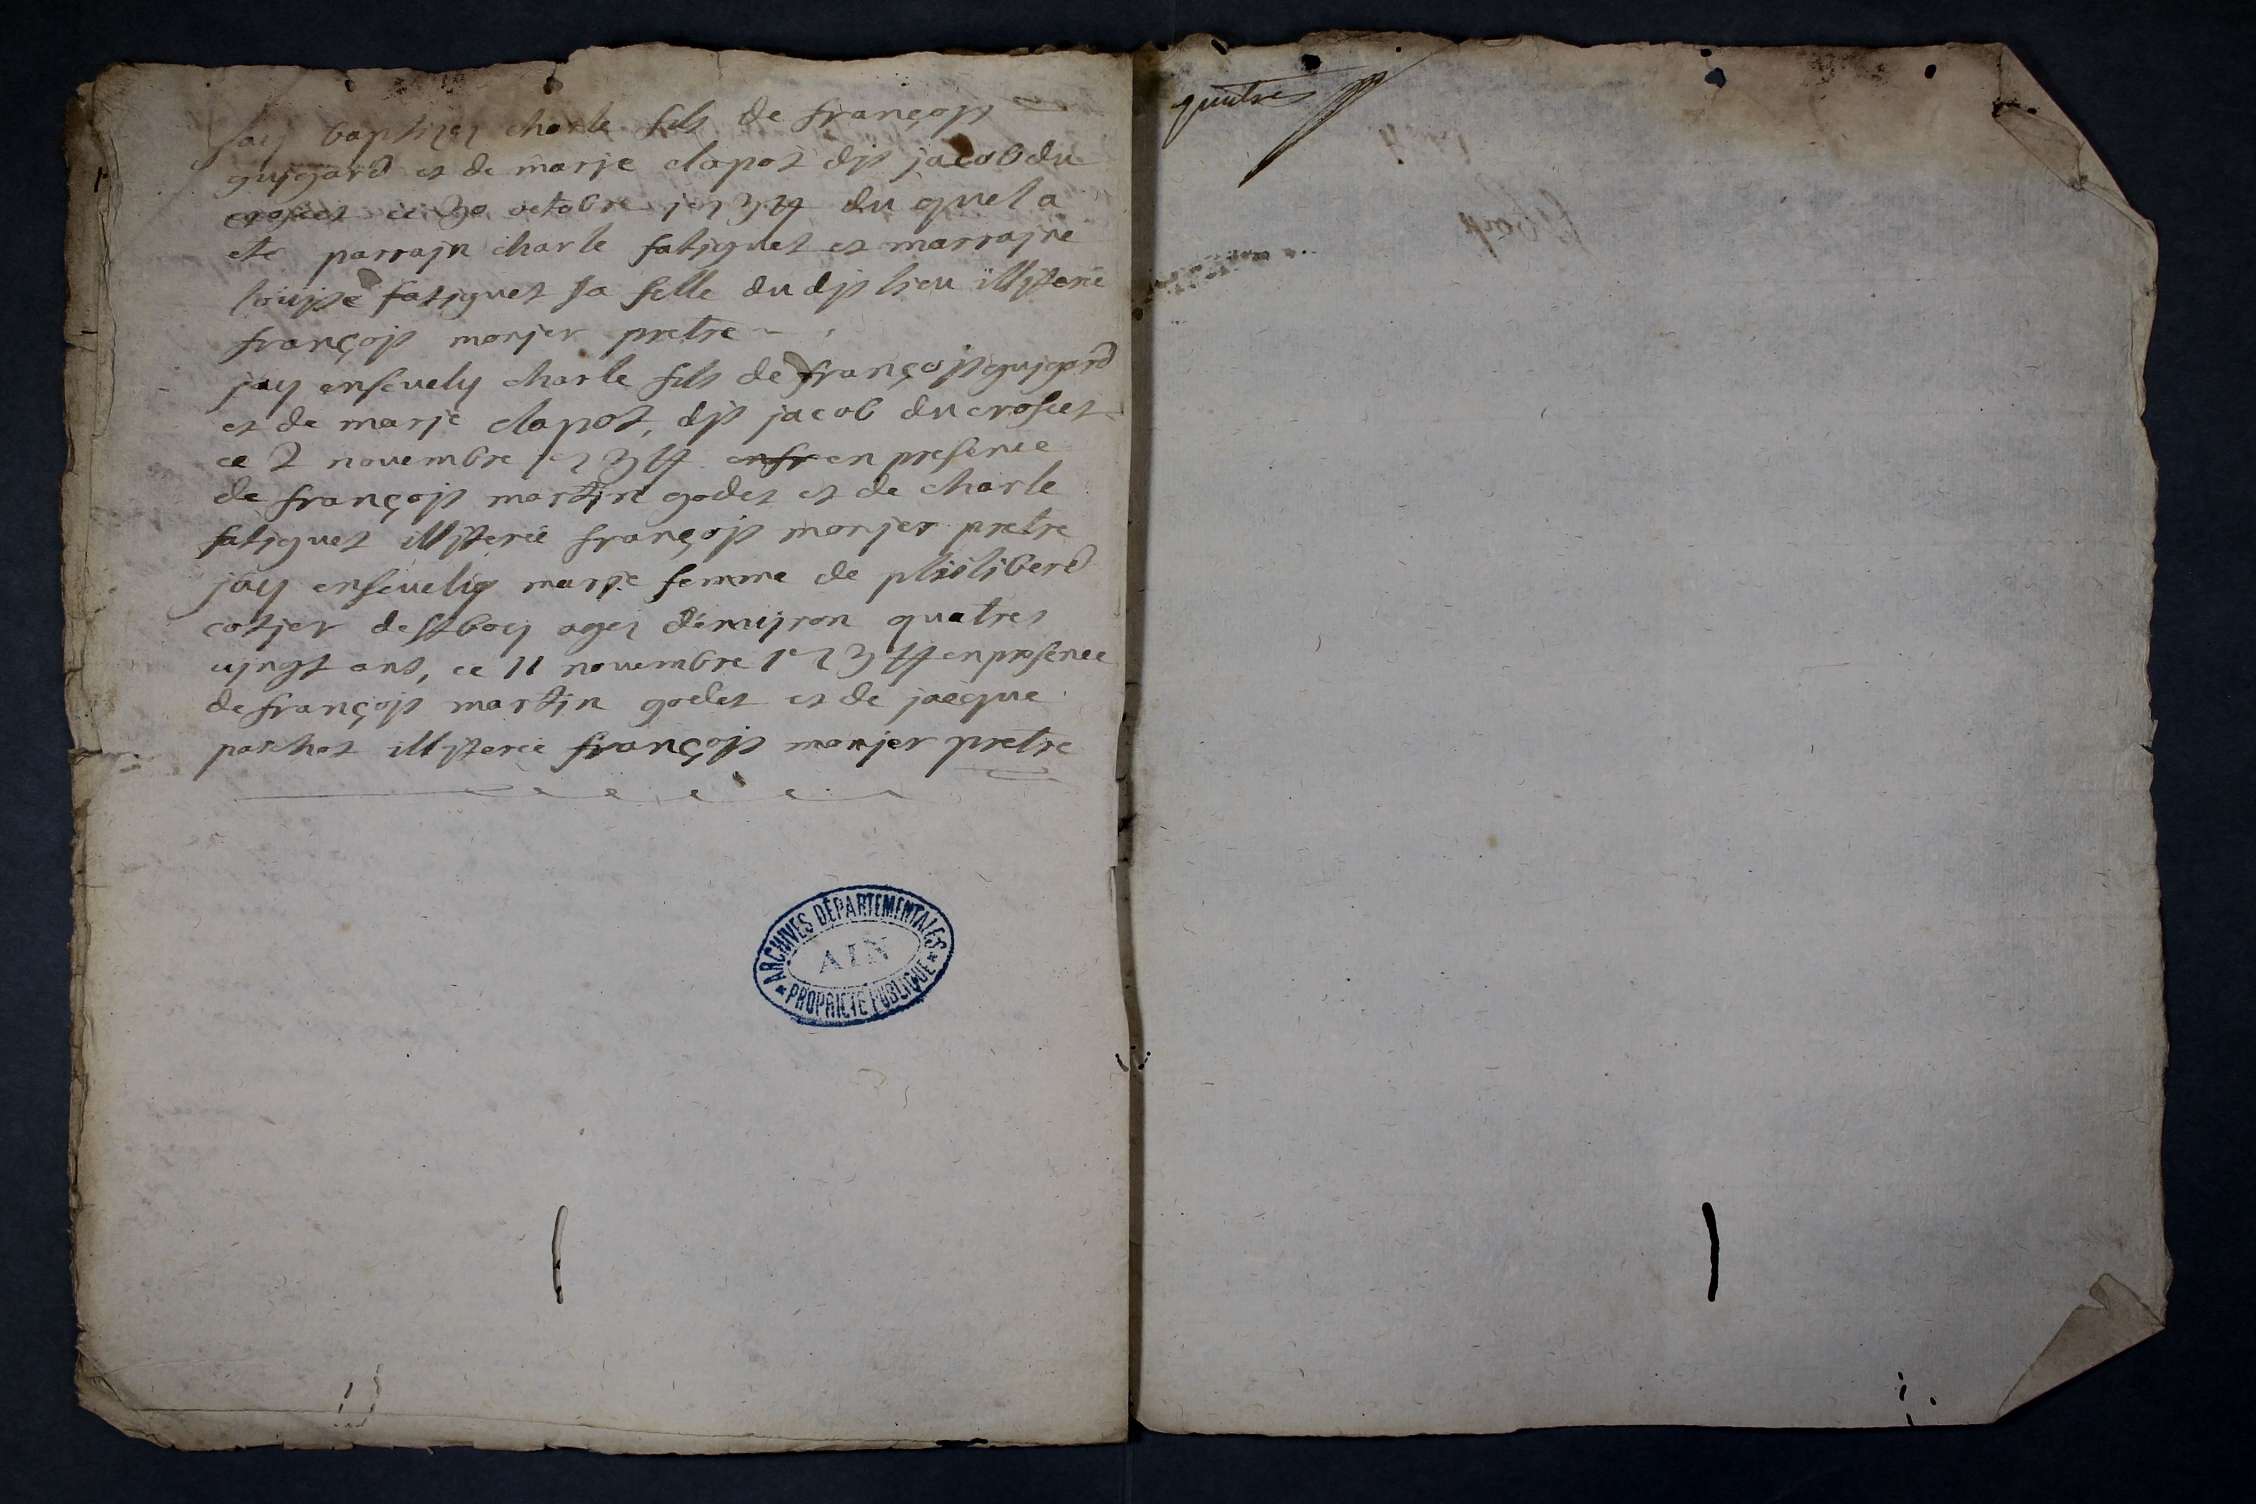 jay baptizez charle fils de françojs
gujgard et de marje clapot djt jacob du
croset ce 30 octobre 1734 du quel a
ete parrajn charle fatjguet et marrajne
loujse fatjguet sa fille du djt ljeu illjteree
françojs monjer pretre
jay enseuely charle fils de françojs gujgard
et de marje clapot, djt jacob du croset
ce 2 novembre 1734 enfr en presence
de françojs martjn godet et de charle
fatjguet illjteree françojs monjer pretre
jay enseuely marje femme de philiberd
cotjer de st boy agez denujron quatres
ujngt ans, ce 11 novembre 1734 en presence
de françojs martjn godet et de jacque
pochot illjteree françojs monjer pretre
ARCHIVES DÉPARTEMENTALES
AIN
* PROPRIÉTÉ PUBLIQUE *
quatres